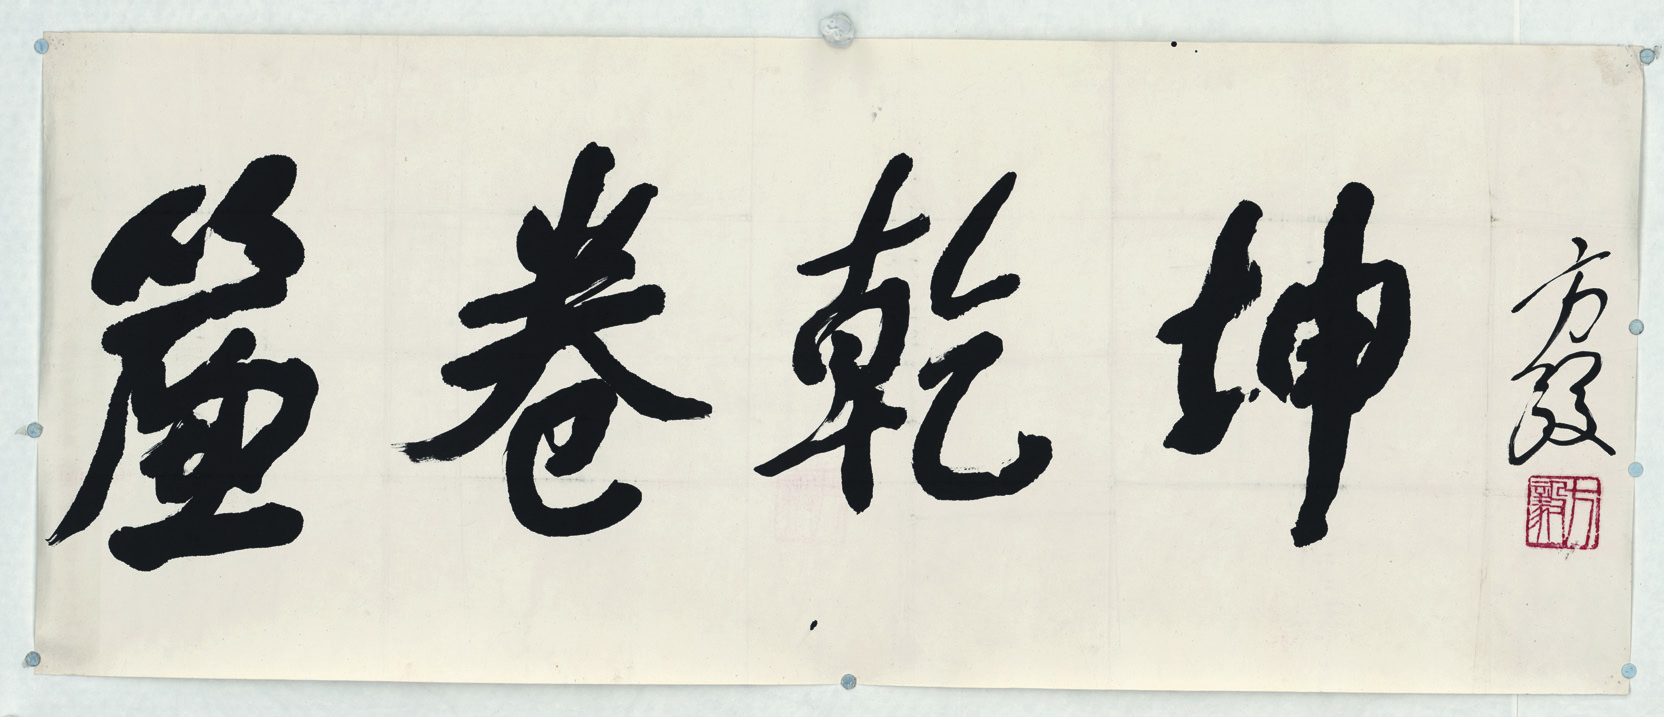 簾卷乾坤
方毅
方毅